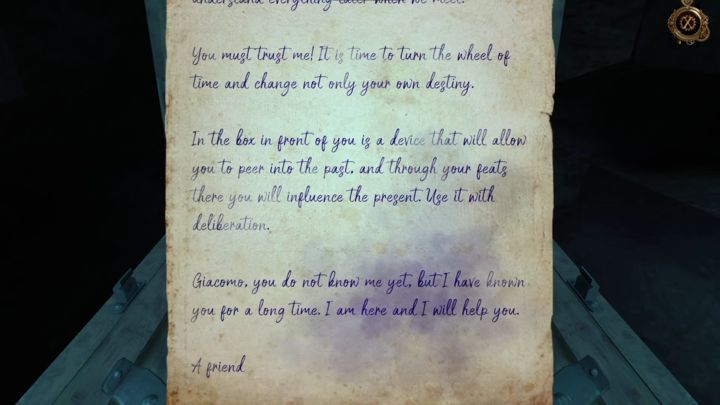 understand everything later when we meet.
You must trust me! It is time to turn the wheel of
time and change not only your own destiny.
In the box in front of you is a device that will allow
you to peer into the past, and through your feats
there you will influence the present. Use it with
deliberation.
Giacomo, you do not know me yet, but I have known
you for a long time. I am here and I will help you.
A friend